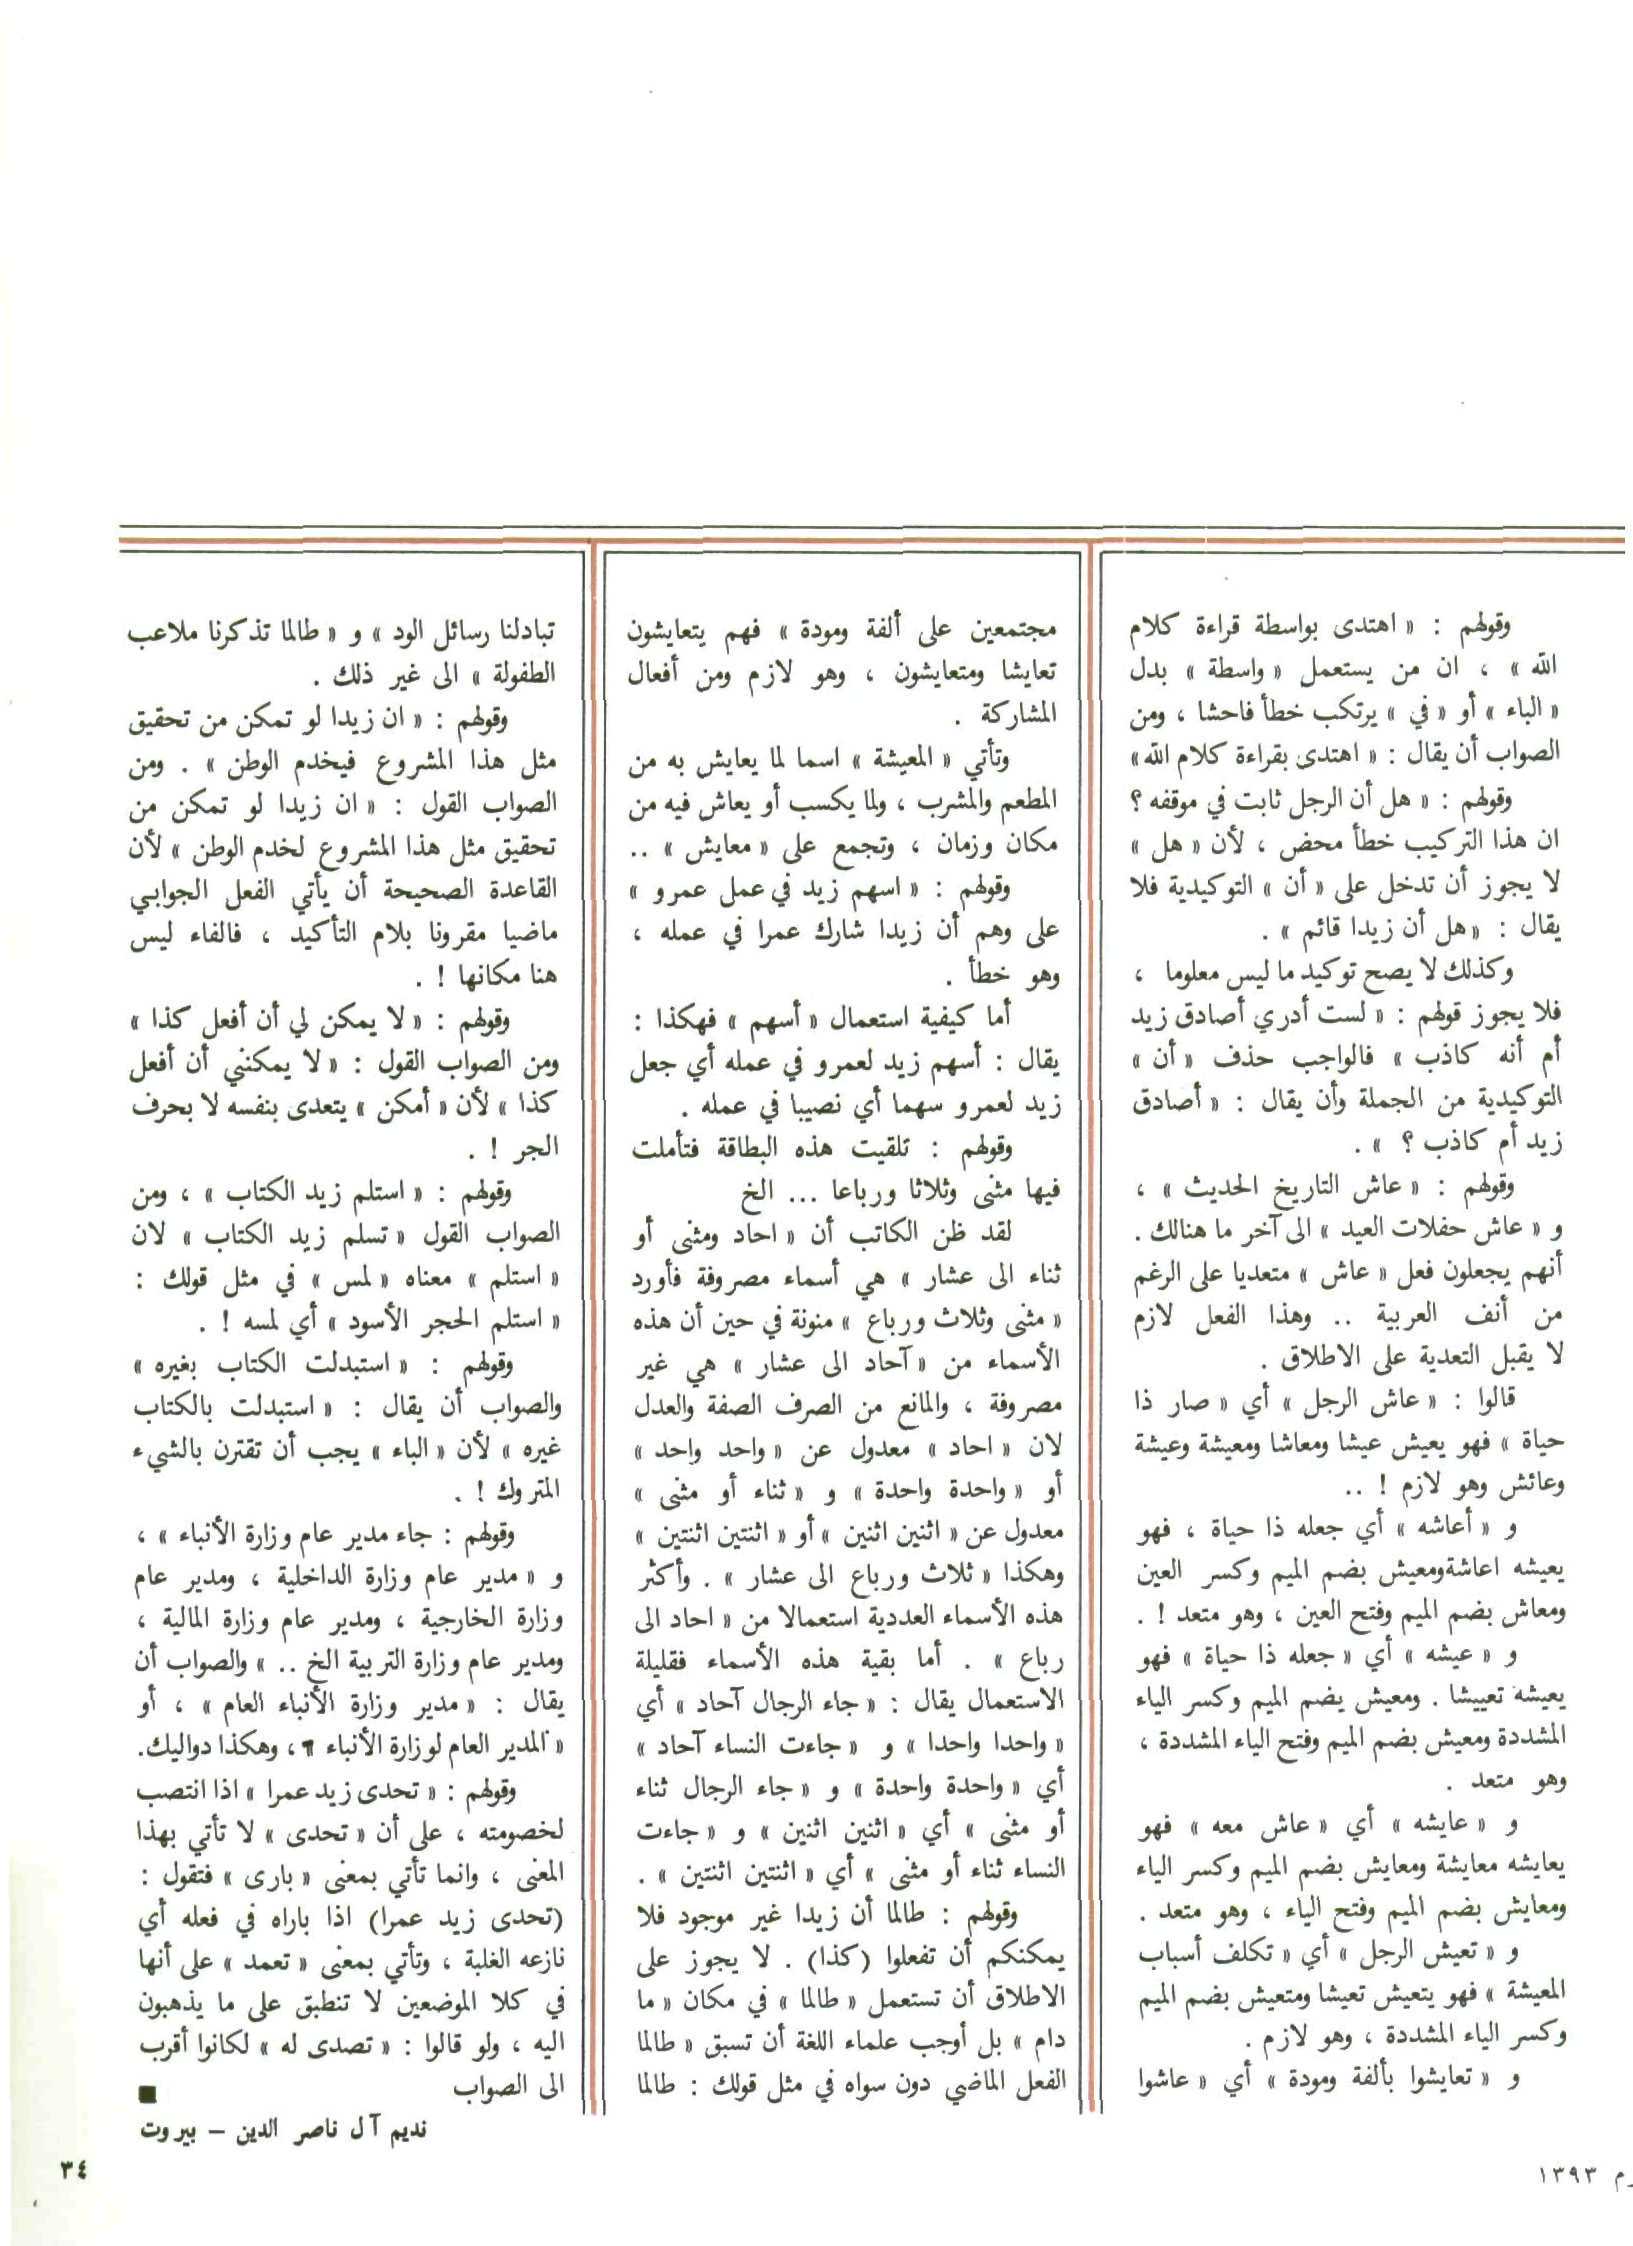 وقولهم : « اهتدى بواسطة قراءة كلام
الله » ، ان من يستعمل « واسطة » بدل
« الباء » أو « في » يرتكب خطأ فاحشا ، ومن
الصواب أن يقال : « اهتدى بقراءة كلام الله »
وقولهم : « هل أن الرجل ثابت في موقفه ؟
ان هذا التركيب خطأ محض ، لأن « هل »
لا يجوز أن تدخل على « أن » التوكيدية فلا
يقال : « هل أن زيدا قائم » .
وكذلك لا يصح توكيد ما ليس معلوما ،
فلا يجوز قولهم : « لست أدري أصادق زيد
أم أنه كاذب » فالواجب حذف « أن »
التوكيدية من الجملة وأن يقال : « أصادق
زيد أم كاذب ؟ » .
وقولهم : « عاش التاريخ الحديث » ،
و « عاش حفلات العيد » الى آخر ما هنالك .
أنهم يجعلون فعل « عاش » متعديا على الرغم
من أنف العربية .. وهذا الفعل لازم
لا يقبل التعدية على الاطلاق .
قالوا : « عاش الرجل » أي « صار ذا
حياة » فهو يعيش عيشا ومعاشا ومعيشة وعيشة
وعائش وهو لازم ! ..
و « أعاشه » أي جعله ذا حياة ، فهو
يعيشه اعاشةومعيش بضم الميم وكسر العين
ومعاش بضم الميم وفتح العين ، وهو متعد ! .
و « عيشه » أي « جعله ذا حياة » فهو
يعيشه تعييشا . ومعيش يضم الميم وكسر الياء
المشددة ومعيش بضم الميم وفتح الياء المشددة ،
وهو متعد .
و « عايشه » أي « عاش معه » فهو
يعايشه معايشة ومعايش بضم الميم وكسر الياء
ومعايش بضم الميم وفتح الياء ، وهو متعد .
و « تعيش الرجل » أي « تكلف أسباب
المعيشة » فهو يتعيش تعيشا ومتعيش بضم الميم
وكسر الياء المشددة ، وهو لازم .
و « تعايشوا بألفة ومودة » أي « عاشوا
مجتمعين على ألفة ومودة » فهم يتعايشون
تعايشا ومتعايشون ، وهو لازم ومن أفعال
المشاركة .
وتأتي « المعيشة » اسما لما يعايش به من
المطعم والمشرب ، ولما يكسب أو يعاش فيه من
مكان وزمان ، وتجمع على « معايش » ..
وقولهم : « اسهم زيد في عمل عمرو »
على وهم أن زيدا شارك عمرا في عمله ،
وهو خطأ .
أما كيفية استعمال « أسهم » فهكذا :
يقال : أسهم زيد لعمرو في عمله أي جعل
زيد لعمرو سهما أي نصيبا في عمله .
وقولهم : تلقيت هذه البطاقة فتأملت
فيها مثنى وثلاثا ورباعا ... الخ
لقد ظن الكاتب أن « احاد ومثنى أو
ثناء الى عشار » هي أسماء مصروفة فأورد
« مثنى وثلاث ورباع » منونة في حين أن هذه
الأسماء من « آحاد الى عشار » هي غير
مصروفة ، والمانع من الصرف الصفة والعدل
لان « احاد » معدول عن « واحد واحد »
أو « واحدة واحدة » و « ثناء أو مثنى »
معدول عن « اثنين اثنين » أو « اثنتين اثنتين »
وهكذا « ثلاث ورباع الى عشار » . وأكثر
هذه الأسماء العددية استعمالا من « احاد الى
رباع » . أما بقية هذه الأسماء فقليلة
الاستعمال يقال : « جاء الرجال آحاد » أي
« واحدا واحدا » و « جاءت النساء آحاد »
أي « واحدة واحدة » و « جاء الرجال ثناء
أو مثنى » أي « اثنين اثنين » و « جاءت
النساء ثناء أو مثنى » أي « اثنتين اثنتين » .
وقولهم : طالما أن زيدا غير موجود فلا
يمكنكم أن تفعلوا (كذا) . لا يجوز على
الاطلاق أن تستعمل « طالما » في مكان « ما
دام » بل أوجب علماء اللغة أن تسبق « طالما
الفعل الماضي دون سواه في مثل قولك : طالما
تبادلنا رسائل الود » و « طالما تذكرنا ملاعب
الطفولة » الى غير ذلك .
وقولهم : « ان زيدا لو تمكن من تحقيق
مثل هذا المشروع فيخدم الوطن » . ومن
الصواب القول : « ان زيدا لو تمكن من
تحقيق مثل هذا المشروع لخدم الوطن » لأن
القاعدة الصحيحة أن يأتي الفعل الجوابي
ماضيا مقرونا بلام التأكيد ، فالفاء ليس
هنا مكانها ! .
وقولهم : « لا يمكن لي أن أفعل كذا »
ومن الصواب القول : « لا يمكنني أن أفعل
كذا » لأن « أمكن » يتعدى بنفسه لا بحرف
الجر ! .
وقولهم : « استلم زيد الكتاب » ، ومن
الصواب القول « تسلم زيد الكتاب » لان
« استلم » معناه « لمس » في مثل قولك :
« استلم الحجر الأسود » أي لمسه ! .
وقولهم : « استبدلت الكتاب بغيره »
والصواب أن يقال : « استبدلت بالكتاب
غيره » لأن « الباء » يجب أن تقترن بالشيء
المتروك ! .
وقولهم : جاء مدير عام وزارة الأنباء » ،
و « مدير عام وزارة الداخلية ، ومدير عام
وزارة الخارجية ، ومدير عام وزارة المالية ،
ومدير عام وزارة التربية الخ .. » والصواب أن
يقال : « مدير وزارة الأنباء العام » ، أو
« المدير العام لوزارة الأنباء » ، وهكذا دواليك.
وقولهم : « تحدى زيد عمرا » اذا انتصب
لخصومته ، على أن « تحدى » لا تأتي بهذا
المعنى ، وانما تأتي بمعنى « بارى » فتقول :
(تحدى زيد عمرا) اذا باراه في فعله أي
نازعه الغلبة ، وتأتي بمعنى « تعمد » على أنها
في كلا الموضعين لا تنطبق على ما يذهبون
اليه ، ولو قالوا : « تصدى له » لكانوا أقرب
الى الصواب
نديم آل ناصر الدين – بيروت
٣٤
١٣٩٣